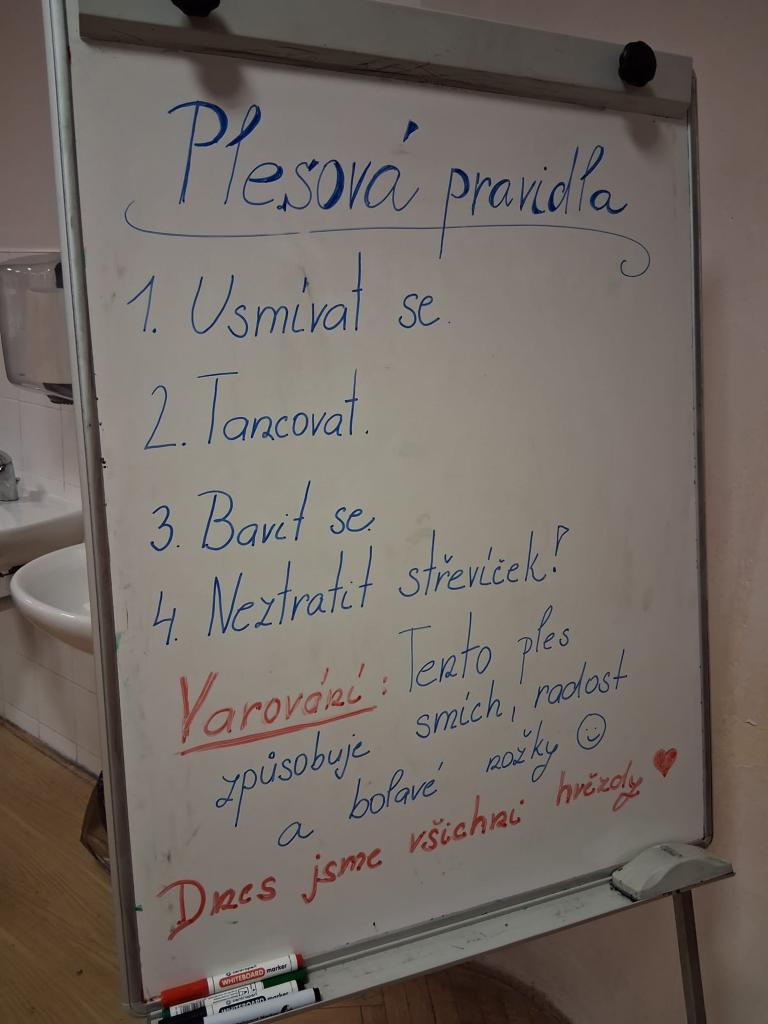 Plesová pravidla
1. Usmívat se.
2. Tancovat.
3. Bavit se.
4. Neztratit střevíček!
Varování: Tento ples
způsobuje smích, radost
a bolavé nožky ☺
Dnes jsme všichni hvězdy ♥
WHITEBOARD marker
WHITEBOARD marker